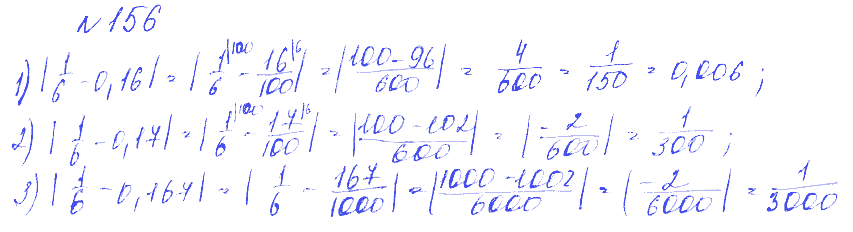 №156
1) |1/6 - 0,16| = |1/6|¹⁰⁰ - 16/100|⁶| = |(100-96)/600| = 4/600 = 1/150 = 0,006 ;
2) |1/6 - 0,17| = |1/6|¹⁰⁰ - 17/100|⁶| = |(100-102)/600| = |-2/600| = 1/300 ;
3) |1/6 - 0,167| = |1/6 - 167/1000| = |(1000-1002)/6000| = |-2/6000| = 1/3000